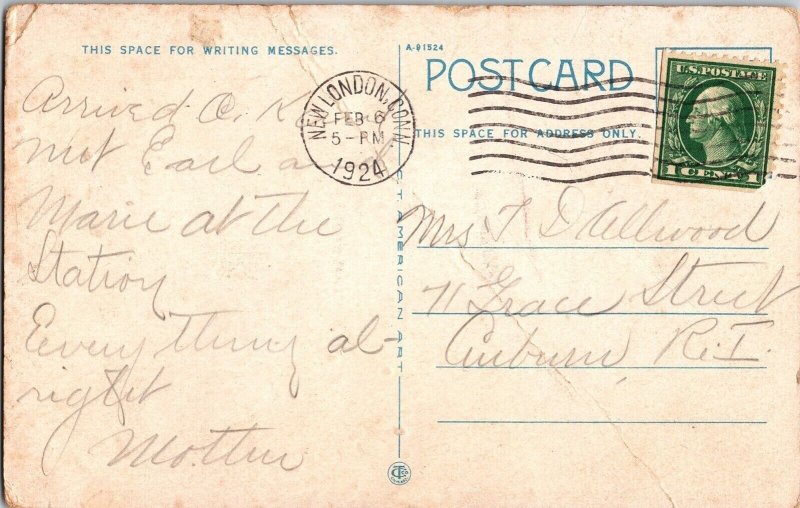 THIS SPACE FOR WRITING MESSAGES.
Arrived O. K.
met Earl a
Marie at the
Station
Everything al-
right
Mother
A-91524
POST CARD
THIS SPACE FOR ADDRESS ONLY.
NEW LONDON, CONN.
FEB 6
5-PM
1924
U.S. POSTAGE
1 CENT 1
CT AMERICAN ART
Mrs T D Allwood
71 Grace Street
Auburn, R.I.